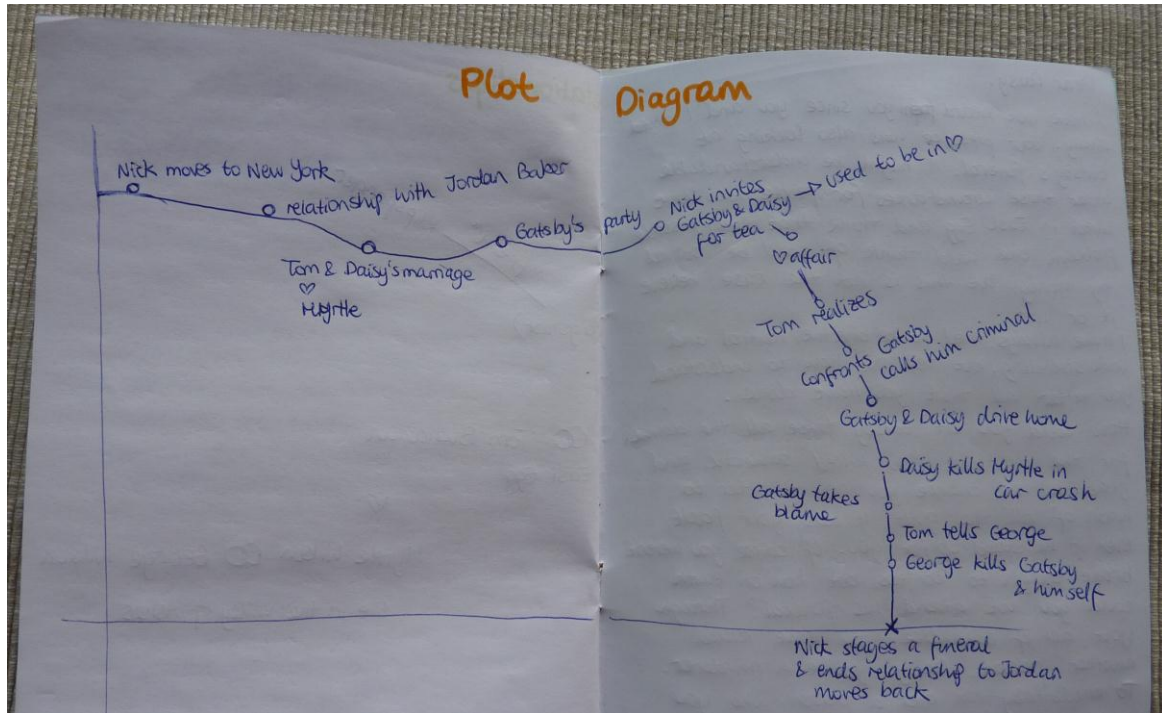 Plot Diagram
Nick moves to New York
relationship with Jordan Baker
Tom & Daisy's marriage
♡
Myrtle
Gatsby's party
Nick invites
Gatsby & Daisy
for tea
→ used to be in ♡
♡ affair
Tom realizes
Confronts Gatsby
calls him criminal
Gatsby & Daisy drive home
Daisy kills Myrtle in
car crash
Gatsby takes
blame
Tom tells George
George kills Gatsby
& himself
Nick stages a funeral
& ends relationship to Jordan
moves back